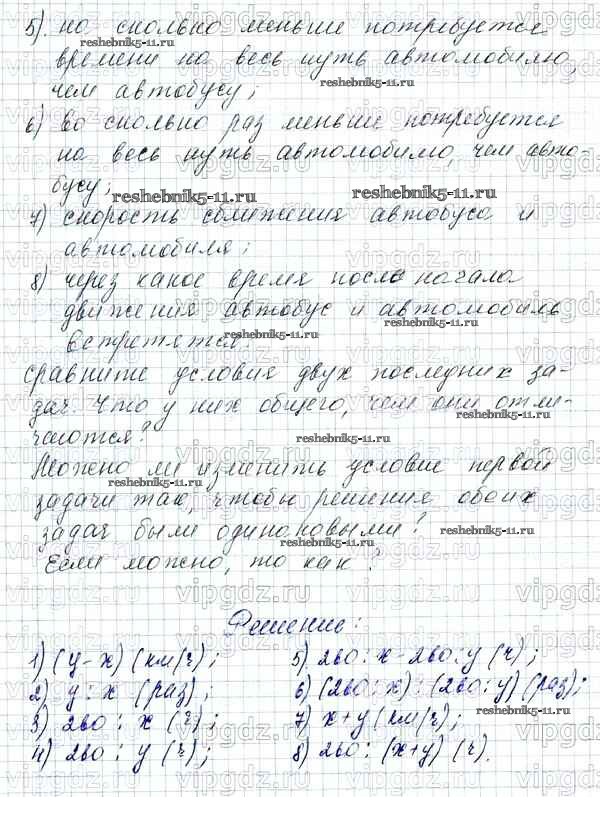 5). на сколько меньше потребуется
времени на весь путь автомобилю,
чем автобусу;
6) Во сколько раз меньше потребуется
на весь путь автомобилю, чем авто-
бусу;
7) скорость сближения автобуса и
автомобиля;
8) через какое время после начала
движения автобус и автомобиль
встретятся.
Сравните условия двух последних за-
дач. Что у них общего, чем они отли-
чаются?
Можно ли изменить условие первой
задачи так, чтобы решения обоих
задач были одинаковыми?
Если можно, то как?
Решение:
1) (y-x) (км/ч);
2) y : x (раз);
3) 260 : x (ч);
4) 260 : y (ч);
5) 260 : x - 260 : y (ч);
6) (260 : x) : (260 : y) (раз);
7) x+y (км/ч);
8) 260 : (x+y) (ч).
reshebnik5-11.ru
vipgdz.ru